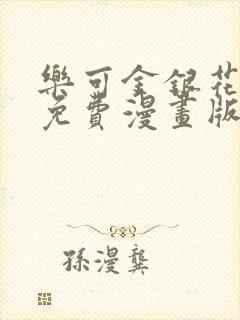 樂可金銀花
免費漫畫版
孫漫龔